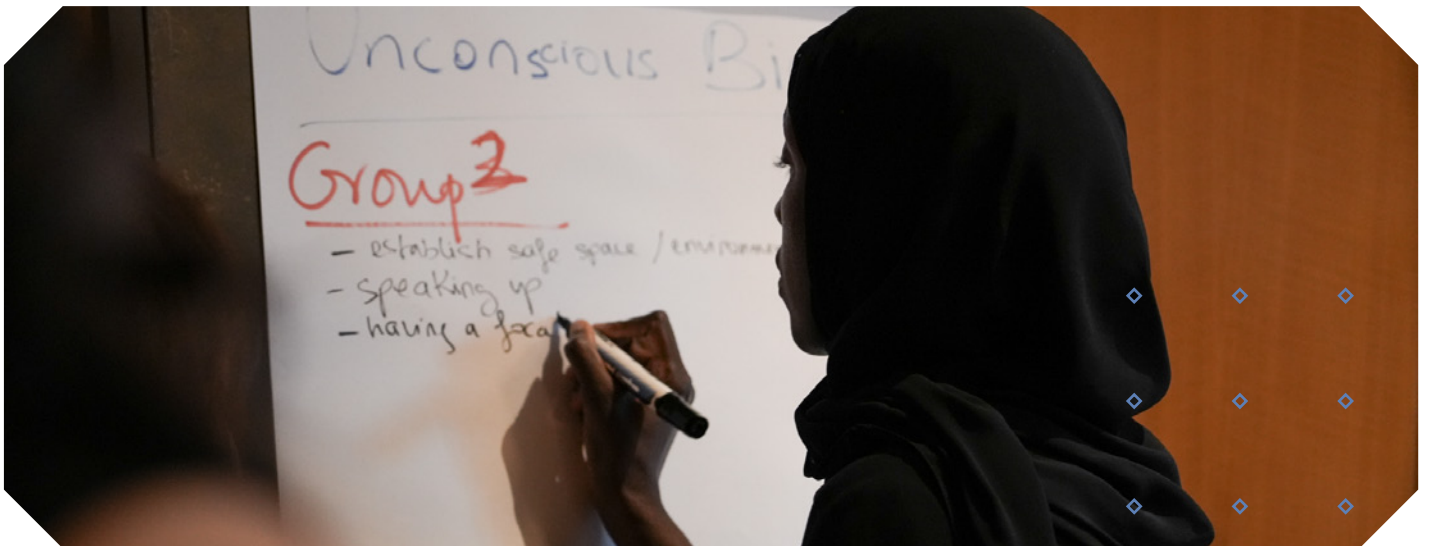 Unconscious Bi
Group 2
- establish safe space / environme
- speaking up
- having a foca